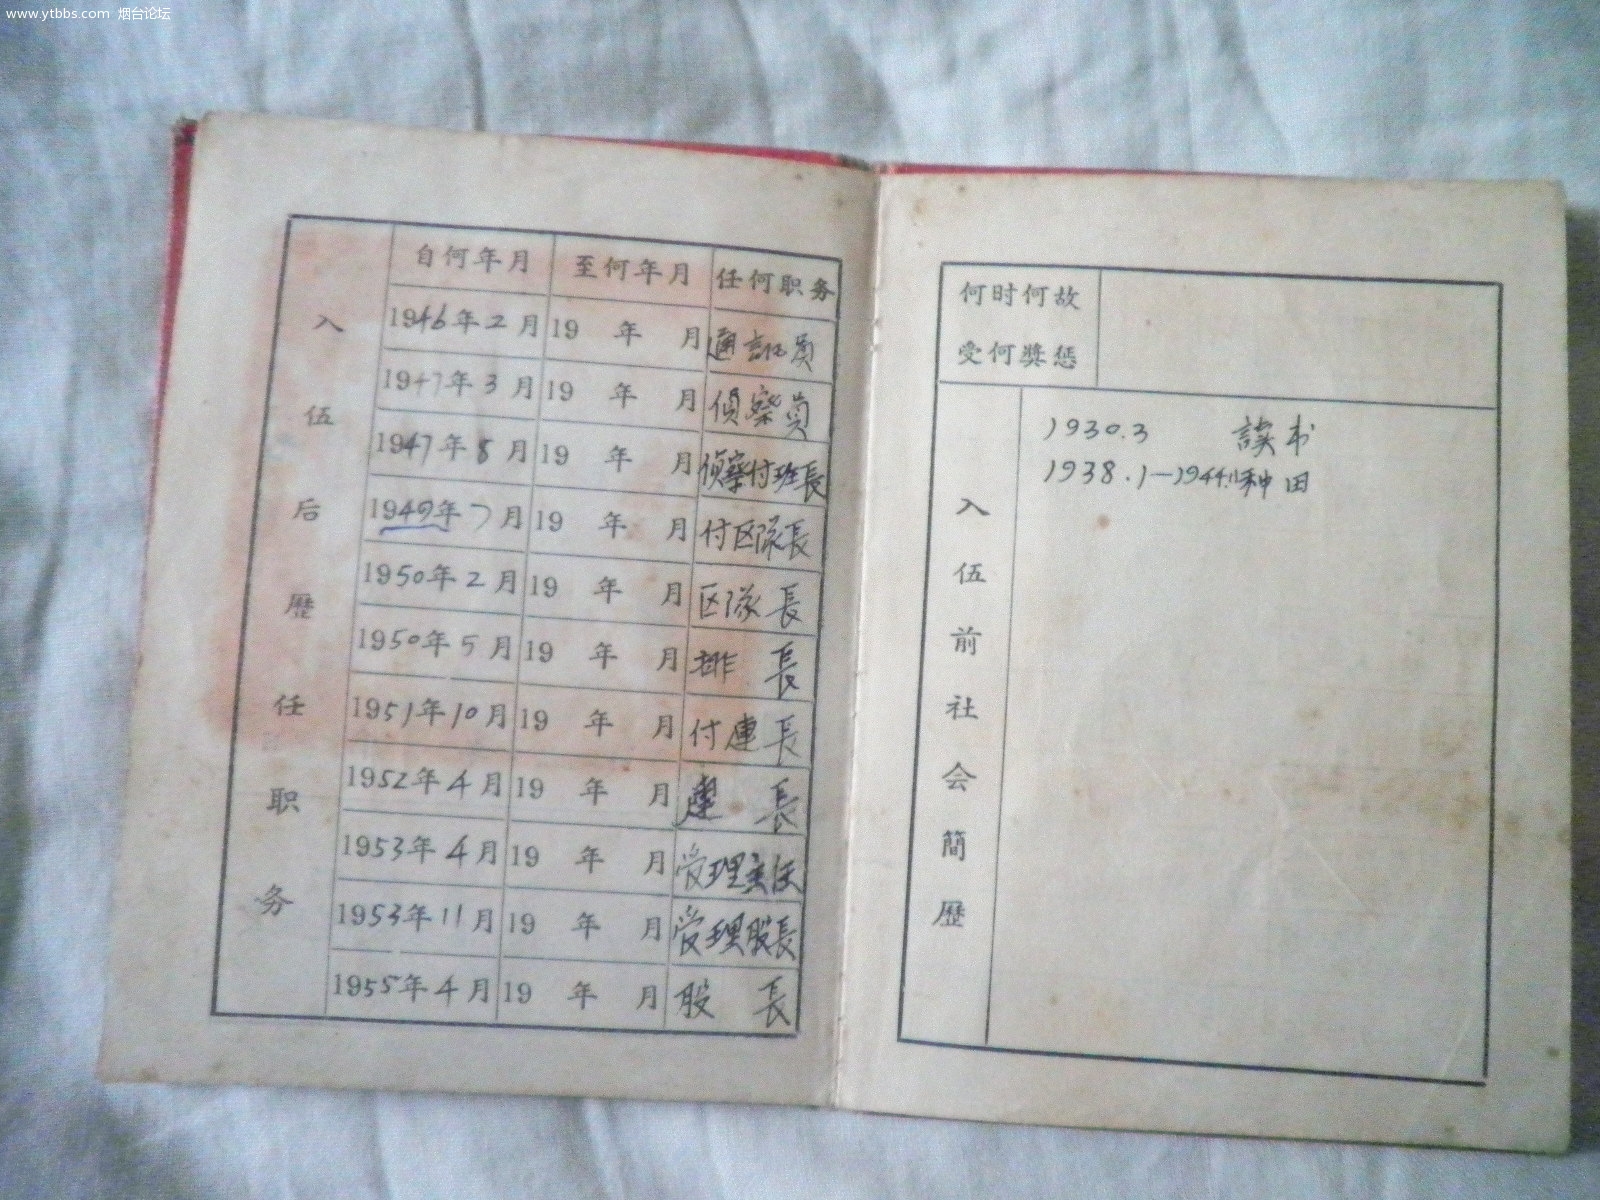 www.ytbbs.com 烟台论坛
入伍后歷任职务
自何年月 至何年月 任何职务
1946年2月 19 年 月 通訊员
1947年3月 19 年 月 偵察員
1947年8月 19 年 月 偵察付班長
1949年7月 19 年 月 付区隊長
1950年2月 19 年 月 区隊長
1950年5月 19 年 月 排長
1951年10月 19 年 月 付連長
1952年4月 19 年 月 連長
1953年4月 19 年 月 受理主任
1953年11月 19 年 月 受理股長
1955年4月 19 年 月 股長
何时何故
受何獎惩
入伍前社会簡歷
1930.3 讀书
1938.1—1944. 种田